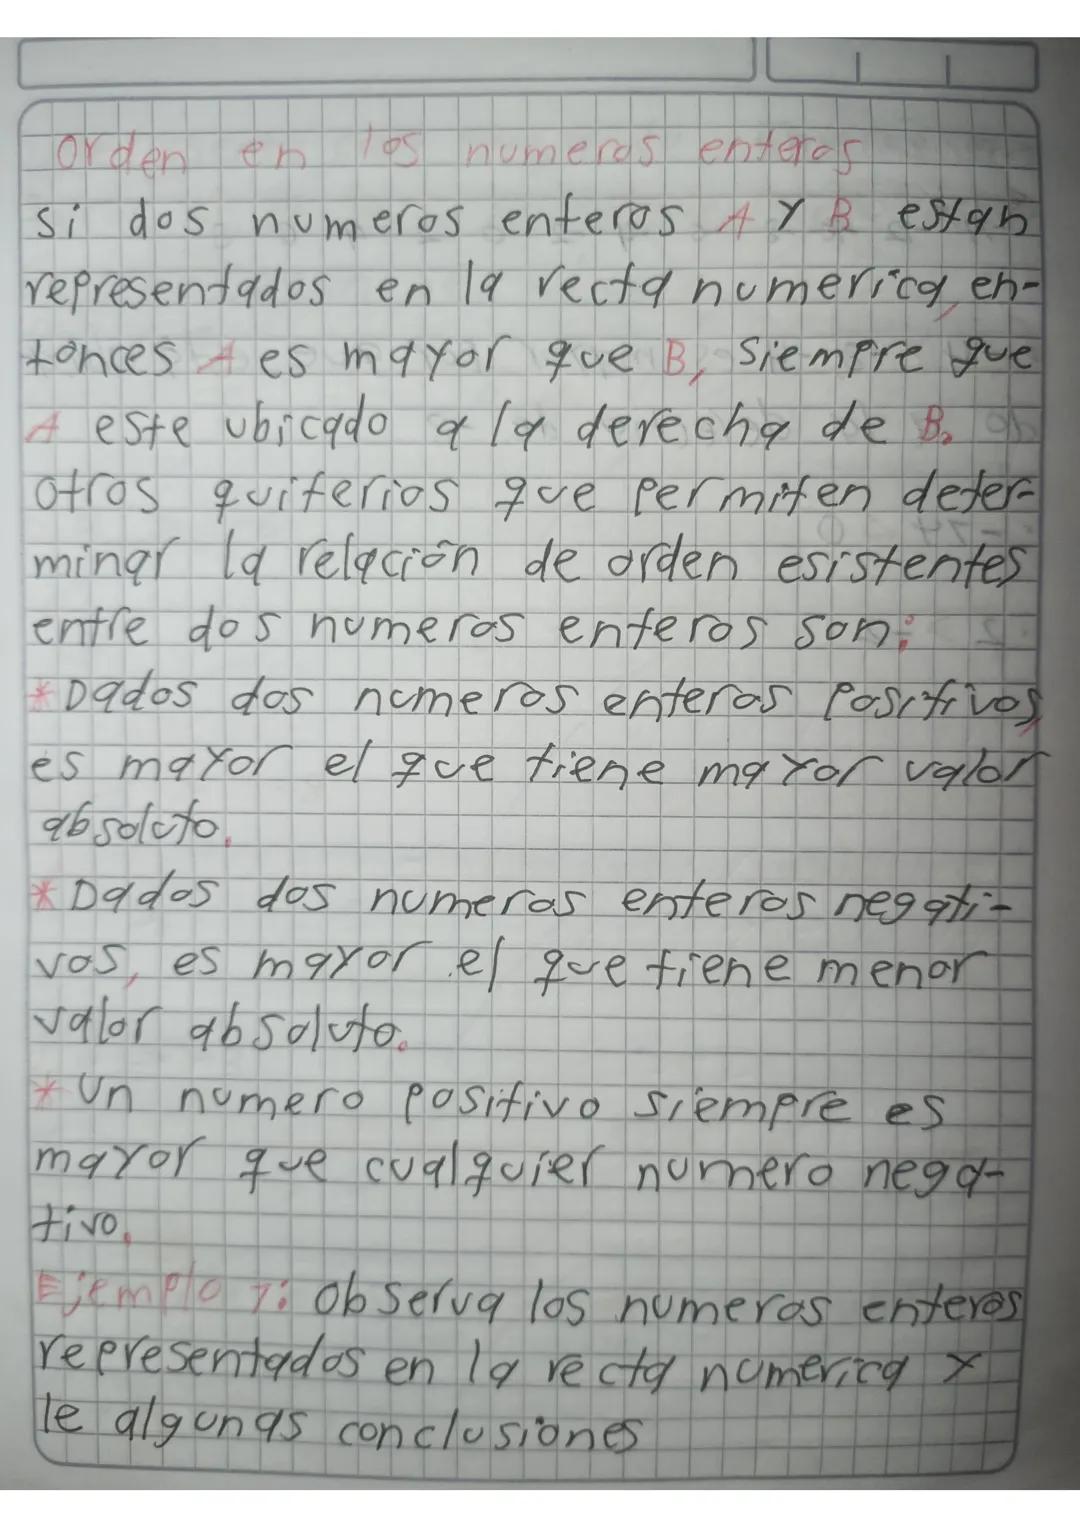 Orden en los numeros enteros
si dos numeros enteros A Y B estan
representados en la recta numerica, en-
tonces A es mayor que B, siempre que
A este ubicado a la derecha de B.
otros quiterios que permiten deter-
minar la relación de orden esistentes
entre dos numeros enteros son:
*Dados dos numeros enteros positivos,
es mayor el que tiene mayor valor
absoluto.
*Dados dos numeros enteros negati-
vos, es mayor el que tiene menor
valor absoluto.
*Un numero positivo siempre es
mayor que cualquier numero nega-
tivo.
Ejemplo 1: Observa los numeros enteros
representados en la recta numerica y
le algunas conclusiones